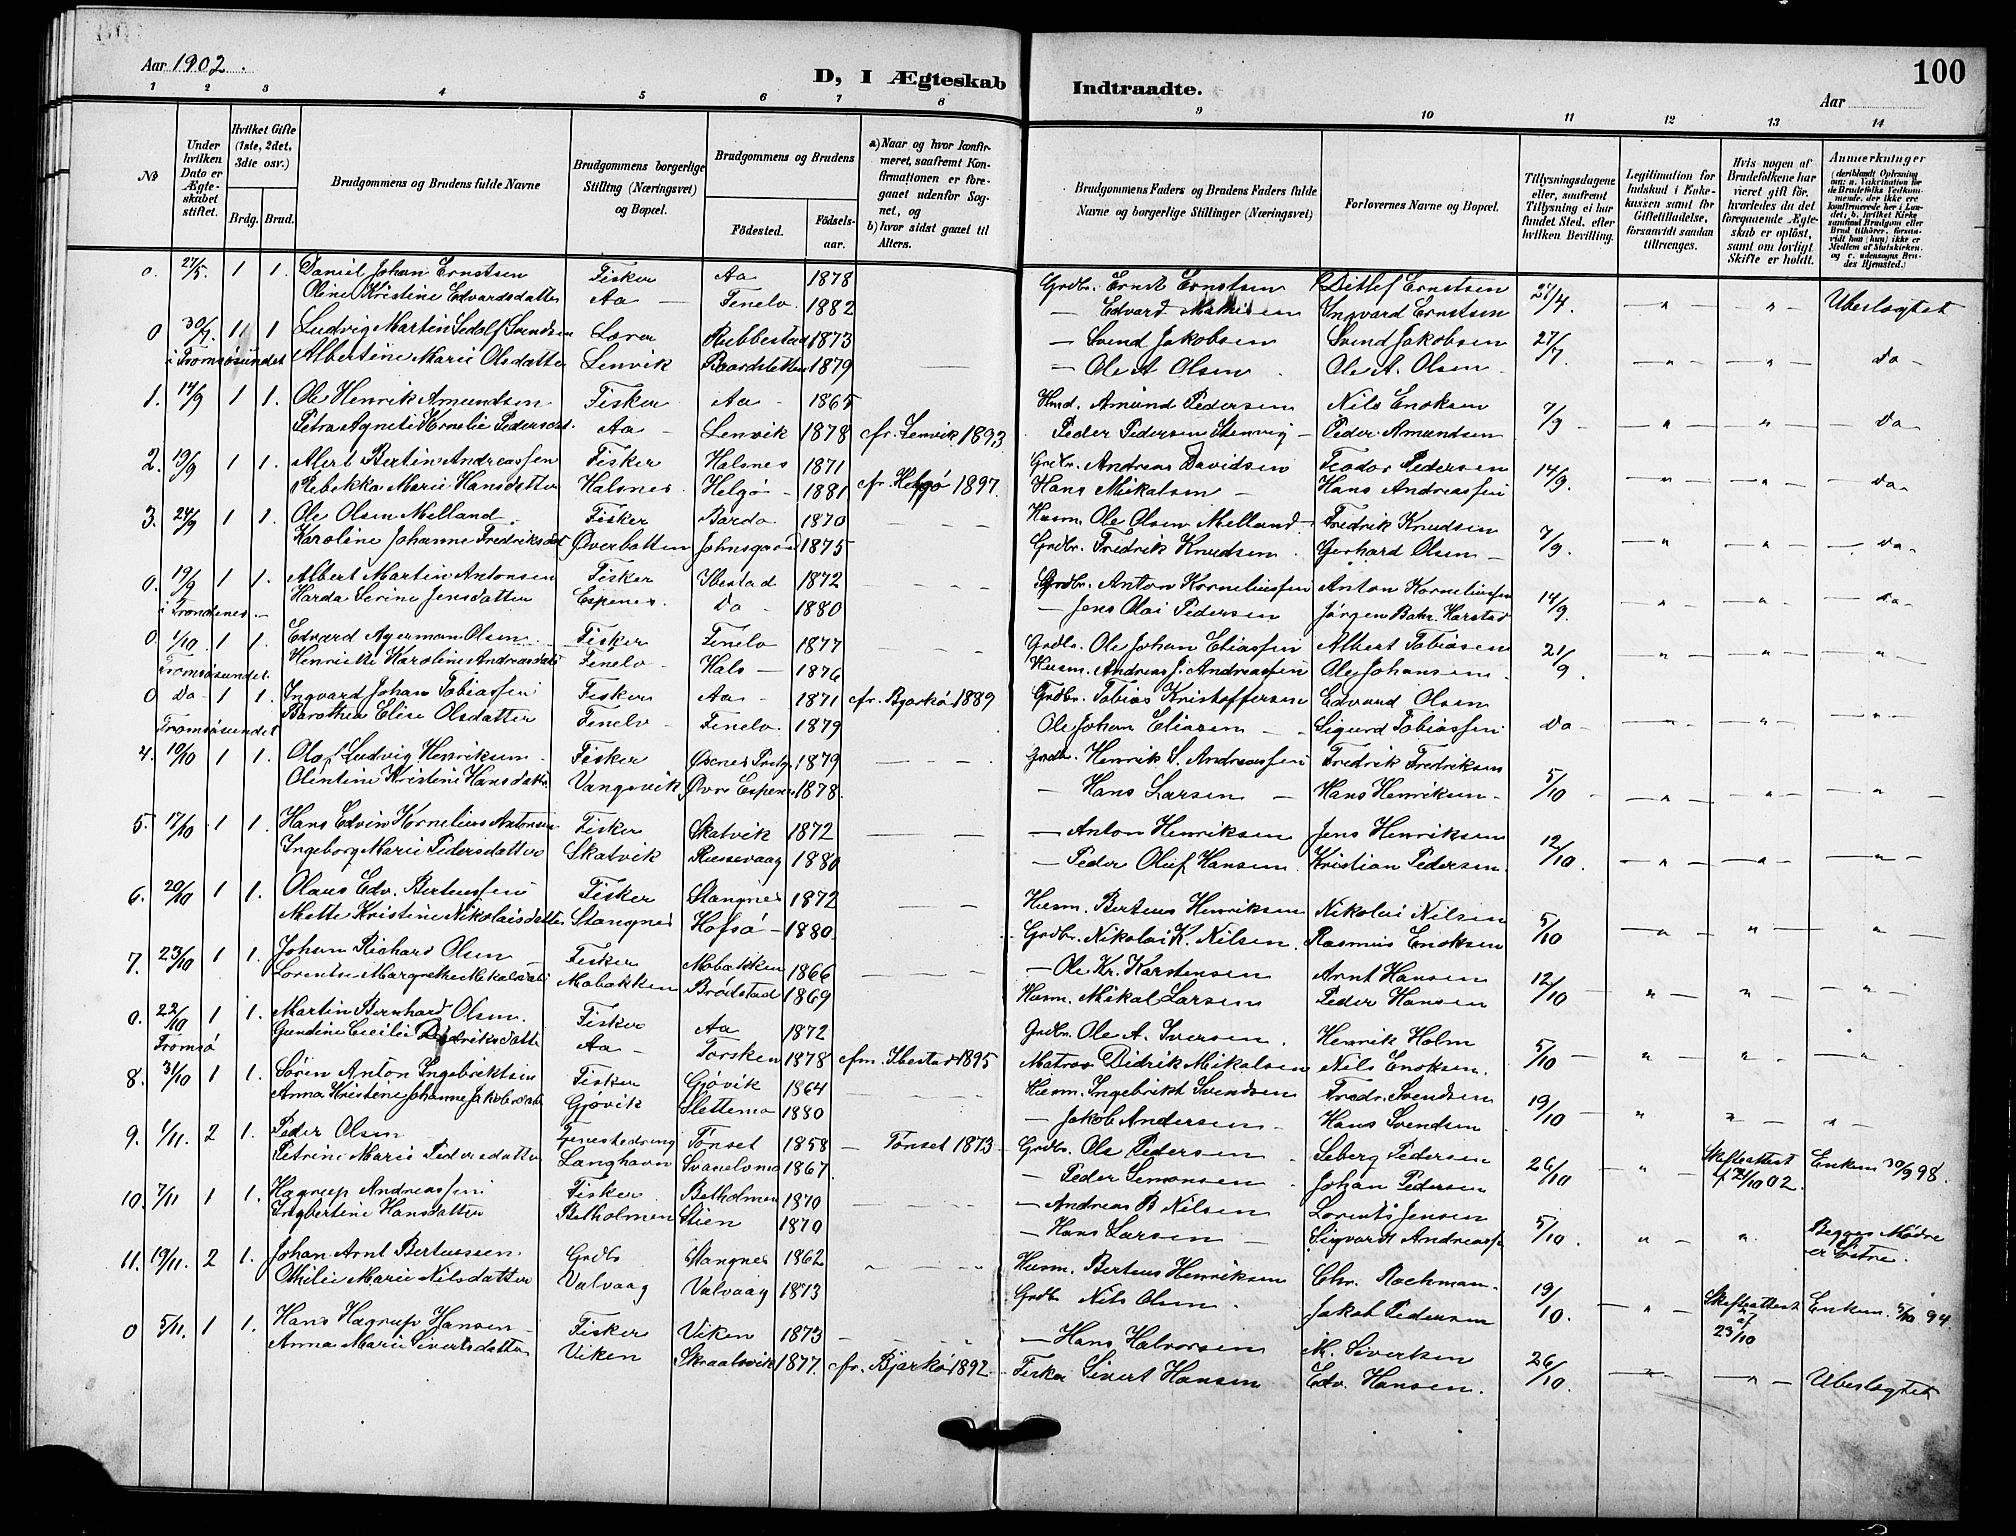 Aar 1902.
D, I Ægteskab Indtraadte.
100
Aar
1 2 3 4 5 6 7 8 9 10 11 12 13 14
No
Under hvilken Dato er Ægteskabet stiftet.
Hvilket Gifte (1ste, 2det, 3die osv.)
Brdg. Brud.
Brudgommens og Brudens fulde Navne
Brudgommens borgerlige Stilling (Næringsvei) og Bopæl.
Brudgommens og Brudens
Fødested. Fødselsaar.
a) Naar og hvor konfirmeret, saafremt Konfirmationen er foregaaet udenfor Sognet, og
b) hvor sidst gaaet til Alters.
Brudgommens Faders og Brudens Faders fulde Navne og borgerlige Stillinger (Næringsvei)
Forlovernes Navne og Bopæl.
Tillysningsdagene eller, saafremt Tillysning ei har fundet Sted, efter hvilken Bevilling.
Legitimation for Indskud i Enkekassen samt for Giftetilladelse, forsaavidt saadan tiltrænges.
Hvis nogen af Brudefolkene har været gift før, hvorledes da det foregaaende Ægteskab er opløst, samt om lovligt Skifte er holdt.
Anmerkninger
0. 27/5. 1 1. Daniel Johan Ernstsen Fisker Aa 1878 Grdbr. Ernst Ernstsen Ditlef Ernstsen 27/4 — " — — " — Ubeslægtet
Oline Kristine Edvardsdatter Aa — Fenelv. 1882 — Edvard Mathisen Ingvard Ernstsen
0 30/7. 1 1 Ludvig Martin Sedolf Svendsen Lærer Rubbestad 1873 — Svend Jakobsen Svend Jakobsen 27/7. — " — — " — Do —
i Tromsøsundet Albertine Marie Olsdatter Lenvik Baardsletten 1879 — Ole A Olsen Ole A. Olsen
1. 14/9 1 1. Ole Henrik Amundsen Fisker Aa — 1865 Husmd. Amund Pedersen Nils Enoksen 7/9 — " — " — Do —
Petra Agnete Kornelie Pedersdat. Aa — Lenvik 1878 cfr. Lenvik 1893 Peder Pedersen Stenvig — Peder Amundsen
2. 19/9 1 1. Alert Bertin Andreassen Fisker Halsnes 1871 Grdbr. Andreas Davidsen Teodor Pedersen 14/9. — " — — " — Da —
Rebekka Marie Hansdatter Halsnes. Helgø — 1881 cfr. Helgø 1897. Hans Mikalsen — Hans Andreassen
3. 24/9 1 1. Ole Olsen Melland Fisker Bardo 1870 Husm. Ole Olsen Melland — Fredrik Knudsen 7/9. — " — " — Da —
Karoline Johanne Fredriksdat Øverbotten Johnsgaard 1875 Grdbr. Fredrik Knudsen Gerhard Olsen —
0. 19/9 1 1. Albert Martin Antonsen Fisker Ibestad 1872 Grdbr. Anton Korneliussen Anton Korneliussen 14/9. — " — " — Da —
i Trondenes — Harda Serine Jensdatter Espenes. Do — 1880 — Jens Olai Pedersen Jørgen Bahr. Harstad
0. 1/10. 1 1. Edvard Agerman Olsen Fisker Fenelv 1877 Grdbr. Ole Johan Eliassen Albert Tobiasen 21/9 — " — " — — " —
Tromsøsundet. Henriette Karoline Andreasdat Fenelv — Hals — 1876 Husm. Andreas J. Andreassen Ole Johansen
0 Do — 1 1. Ingvard Johan Tobiassen Fisker Aa — 1871 cfr. Bjarkø 1889 Grdbr. Tobias Kristoffersen Edvard Olsen Do — " — — " — — " —
Tromsøsundet Barothea Elise Olsdatter Fenelv — Fenelv. 1879 Ole Johan Eliasen — Sigurd Tobiassen
4. 10/10 1 1. Olaf Ludvig Henriksen Fisker Øxnes Prstgj. 1879 Grdbr. Henrik S. Andreassen Fredrik Fredriksen 5/10 — " — — " — — " —
Olentine Kristine Hansdatter Vangsvik Øvre Espenes 1878. — Hans Larsen — Hans Henriksen —
5. 17/10 1 1. Hans Edvin Kornelius Antonsen Fisker Skatvik 1872 — Anton Henriksen Jens Henriksen 12/10. — " — — " — " —
Ingeborg Marie Pedersdatter Skatvik Russevaag 1880 — Peder Oluf Hansen Kristian Pedersen
6. 20/10 1 1. Olaus Edv. Berteussen Fisker Stangnes 1872 Husm. Berteus Henriksen Nikolai Nilsen 5/10 — " — — " — "
Mette Kristine Nikolaisdatter Stangnes Hofsø — 1880. Grdbr. Nikolai K. Nilsen. Rasmus Enoksen
7. 23/10 1 1. Johan Richard Olsen Fisker Mobakken 1866 — Ole Kr. Karstensen Arnt Hansen 12/10 — " — — " — — " —
Lorentse Margrethe Mekalsdat Mobakken Brødstad 1869 Husm. Mikal Larsen Peder Hansen
0. 22/10 1 1. Martin Bernhard Olsen. Fisker Aa 1872 Grdbr. Ole A. Iversen. Henrik Holm 5/10 — " — " — — " —
Tromsø Gundine Cecilie Didriksdatter Aa — Torsken 1878 cfm. Ibestad 1895 Matros Didrik Mikalsen Nils Enoksen.
8. 31/10 1 1. Søren Anton Ingebriktsen Fisker Gjøvik 1864 Husm. Ingebrikt Svendsen Fredr. Svendsen 19/10 " — " — — " —
Anna Kristine Johanne Jakobsdatt Gjøvik Slettemo 1880 — Jakob Andersen — Hans Svendsen
9. 1/11. 2 1. Peder Olsen Tønset 1858 — Tønset 1873 Grdbr. Ole Pedersen Seberg Pedersen 26/10 — " Skifteattest Enkem 30/9 98.
Petrine Marie Pedersdatter Langhavn Svanelvmo 1867. — Peder Simonsen Johan Pedersen 02.
10. 7/11 1 1. Hagrup Andreassen Fisker Botholmen 1870 — Andreas B Nilsen Lorents Jensen 5/10. " " Begges Mødre
Ingbertine Hansdatter Botholmen Stien 1870 — Hans Larsen — Sigvardt Andreassen er Søstre.
11. 19/11. 2 1. Johan Arnt Berteussen Grdb Stangnes 1862 Husm. Berteus Henriksen Chr. Rochman. 19/10. — " — Skifteattest Enkem. 94.
Othilie Marie Nilsdatter Valvaag Valvaag 1873 Grdbr Nils Olsen. Jakob Pedersen af 23/10
0 5/11. 1 1. Hans Hagrup Hansen — Fisker Viken 1873 — Hans Halvorsen M. Sivertsen 26/10. — " — — " — Ubeslægtet
Anna Marie Sivertsdatter Viken Skraalsvik 1877. cfr. Bjarkø 1892. Fisker Sivert Hansen Edv. Hansen.